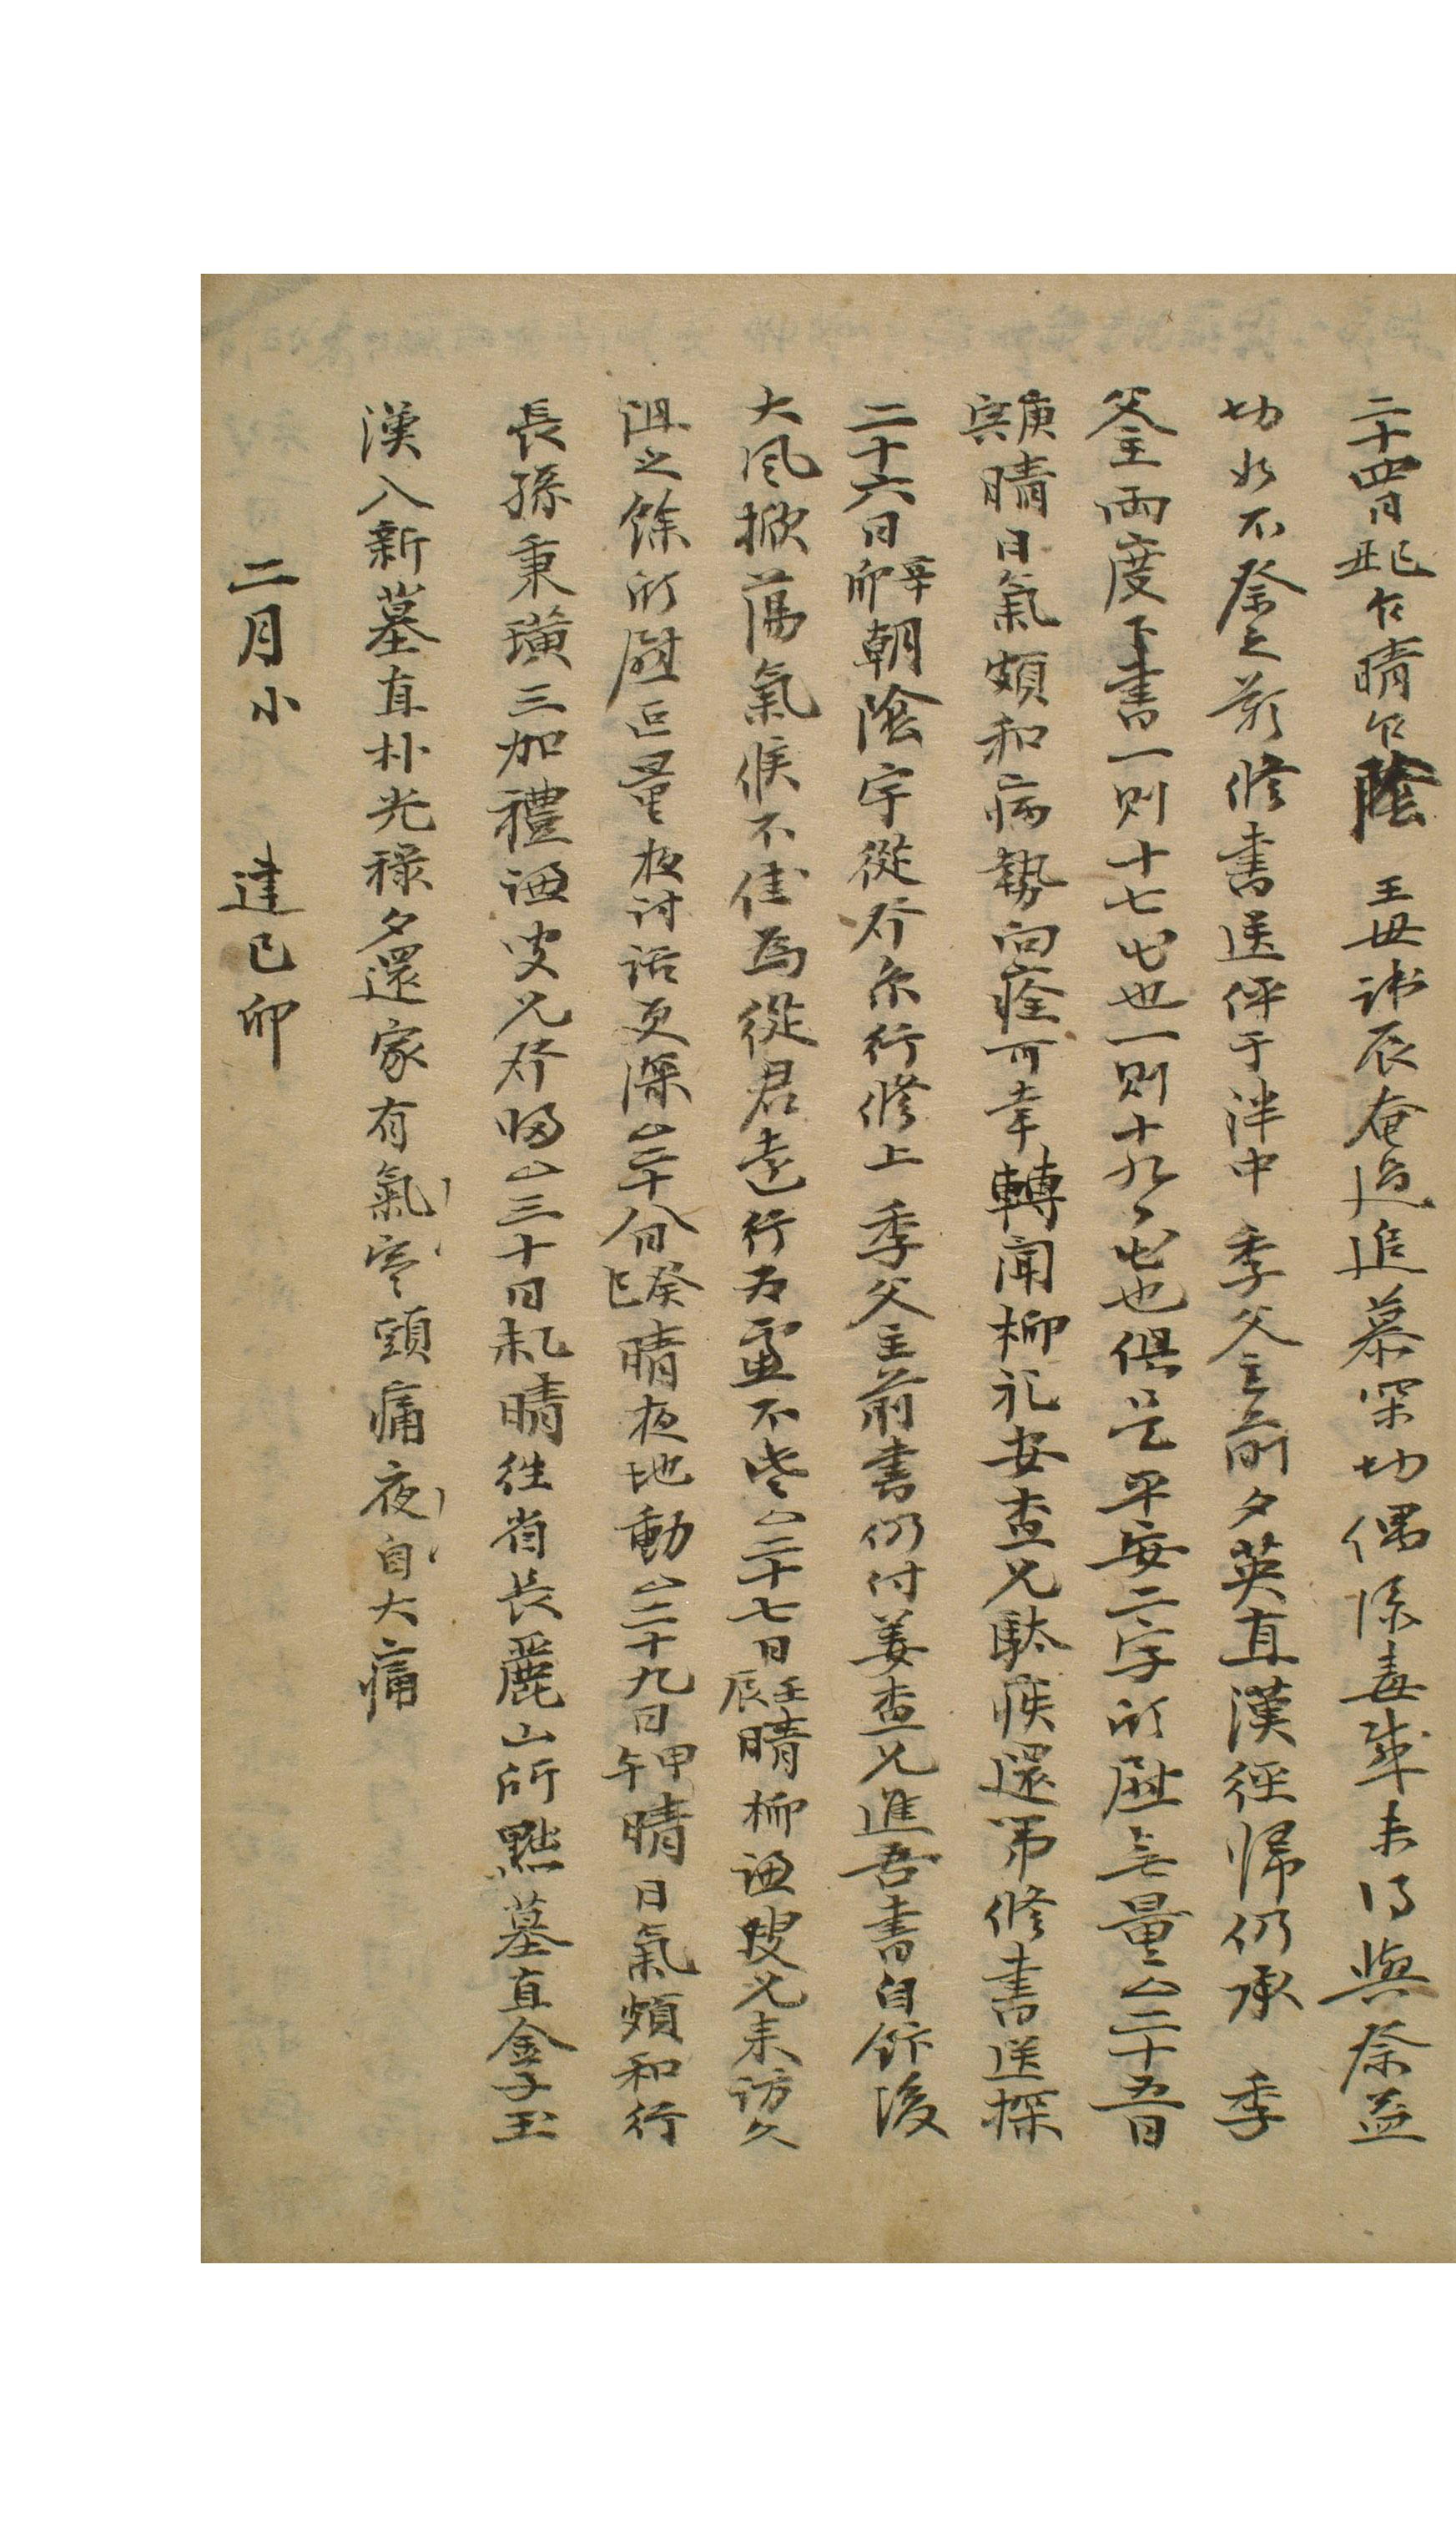 二十四日己丑乍晴乍陰 王母諱辰奄過追慕罙切偶係毒感未得與祭益
切如不祭之歎修書送伻于泮中 季父主前夕英直漢徑歸仍承 季
父主兩度下書一則十七出也一則十九出也俱是平安二字所慰無量△二十五日
庚寅晴日氣頗和病勢向痊可幸轉聞柳礼安査兄駄疾還第修書送探
二十六日辛卯朝陰宇從發京行修上 季父主前書仍付姜査兄進吾書自飯後
大風掀蕩氣候不佳爲從君遠行而慮不些△二十七日壬辰晴柳謙叟兄來訪久
阻之餘所慰叵量夜討話更深△二十八日癸巳晴夜地動△二十九日甲午晴日氣頗和行
長孫秉璜三加禮謙叟兄發歸△三十日乙未晴往省長麗山所點墓直金子玉
漢入新墓直朴光祿夕還家有氣寒頭痛夜自大痛
二月小 建己卯